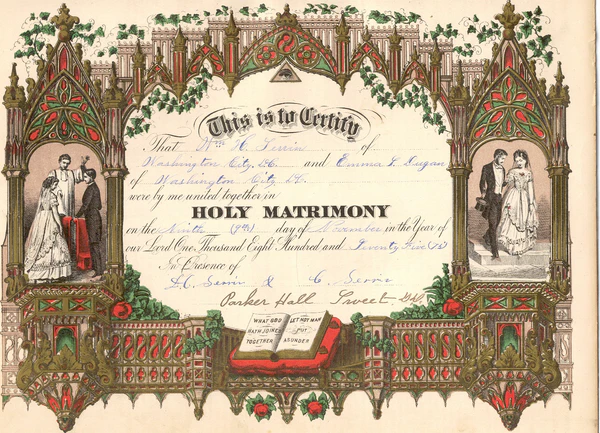 This is to Certify
That Wm. H. of
Washington City D.C. and Emma
of Washington City D.C.
were by me united together in
HOLY MATRIMONY
on the Ninth (9th) day of November in the Year of
our Lord One Thousand Eight Hundred and Seventy Five (75)
In Presence of
& C.
Parker Hall Sweet
WHAT GOD HATH JOINED TOGETHER
LET NOT MAN PUT ASUNDER